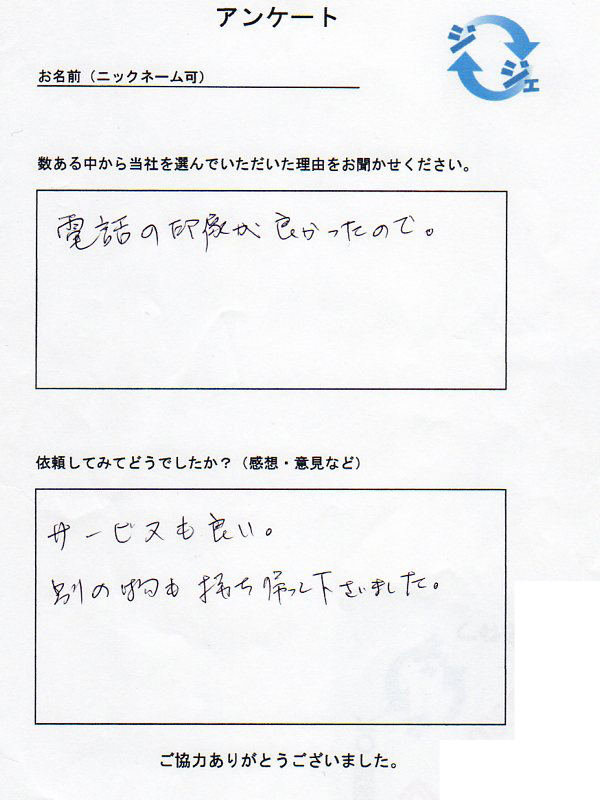 アンケート
ジジェ
お名前（ニックネーム可）
数ある中から当社を選んでいただいた理由をお聞かせください。
電話の印象が良かったので。
依頼してみてどうでしたか？（感想・意見など）
サービスも良い。
別の物も持ち帰って下さいました。
ご協力ありがとうございました。